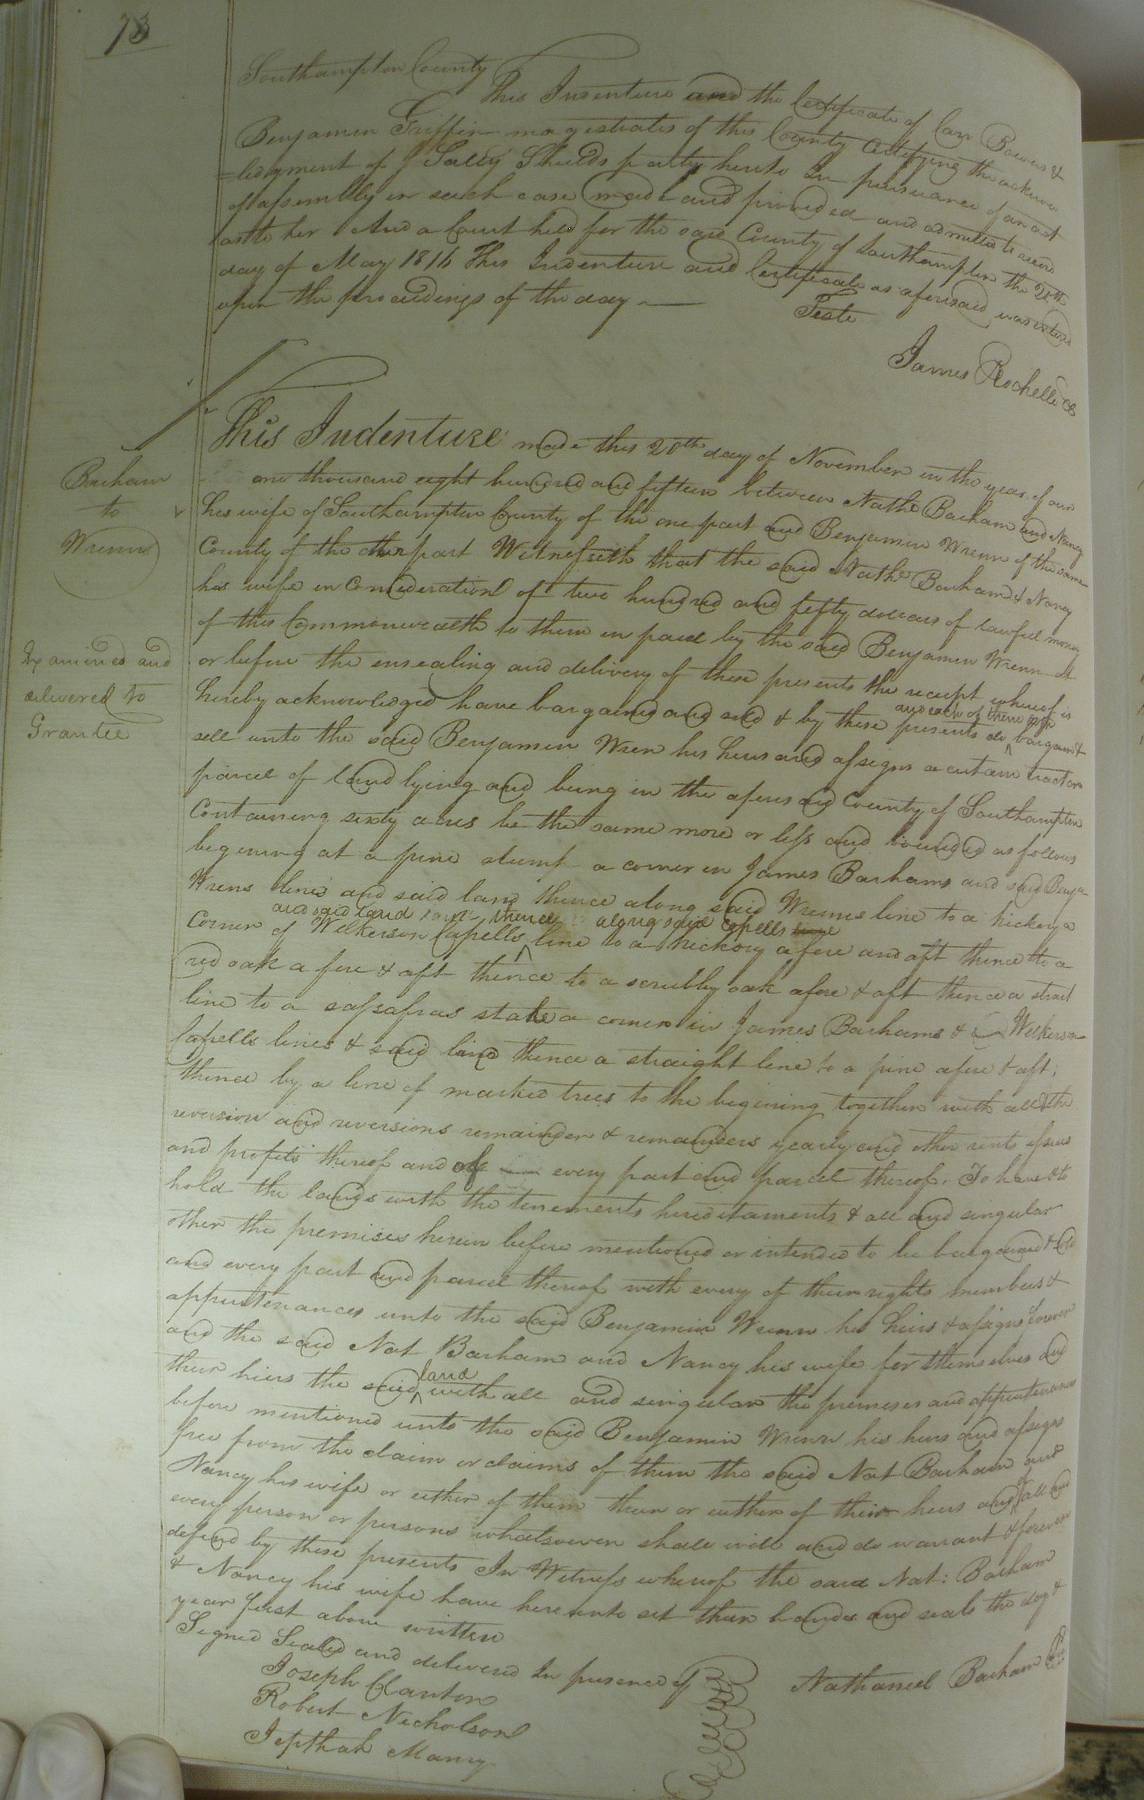 78
Southampton County
This Indenture and the Certificate of Carr Bowers &
Benjamin Griffin magistrates of this County Certifying the acknow
=ledgment of Sally Shields party hereto In pursuance of an act
of assembly in such case made and provided and admitted to record
as to her And a Court held for the said County of Southampton the 20th
day of May 1816 This Indenture and Certificate as aforesaid was entered
upon the proceedings of the day
Teste
James Rochelle CS
Barham
to
Wrenn
Examined and
delivered to
Grantee
This Indenture made this 20th day of November in the year of our
one thousand eight hundred and fifteen between Nathl Barham and Nancy
his wife of Southampton County of the one part and Benjamin Wrenn of the same
County of the other part Witnesseth that the said Nathl Barham & Nancy
his wife in Consideration of two hundred and fifty dollars of lawful money
of this Commonwealth to them in paid by the said Benjamin Wrenn at
or before the ensealing and delivery of these presents the receipt whereof is
hereby acknowledged have bargained and sold & by these presents do and each of them doth bargain &
sell unto the said Benjamin Wren his heirs and assigns a certain tract or
parcel of land lying and being in the aforesaid County of Southampton
Containing sixty acres be the same more or less and bounded as follows
begining at a pine stump a corner in James Barhams and said Benja
Wrens lines and said land thence along said Wrenns line to a hickory a
Corner of Wilkerson Capells and said land thence along said Capells line to a hickory afore and aft thence to a
red oak a fore & aft thence to a scrubby oak afore & aft thence a strait
line to a sassafras stake a corner in James Barhams & Wilkerson
Capells lines & said land thence a straight line to a pine afore & aft;
thence by a line of marked trees to the begining together with all & the
reversion and reversions remainder & remainders yearly and other rents issues
and profits thereof and of every part and parcel thereof. To have & to
hold the lands with the tenements hereditaments & all and singular
other the premises herein before mentioned or intended to be bargained & sold
and every part and parcel thereof with every of their rights members &
appurtenances unto the said Benjamin Wrenn his heirs & assigns forever
and the said Nat Barham and Nancy his wife for themselves and
their heirs the said land with all and singular the premises and appurtenances
before mentioned unto the said Benjamin Wrenn his heirs and assigns
free from the claim or claims of them the said Nat Barham and
Nancy his wife or either of them their or either of their heirs and of all and
every person or persons whatsoever shall will and do warrant & forever
defend by these presents In Witness whereof the said Nat: Barham
& Nancy his wife have hereunto set their hands and seals the day &
year first above written
Signed Sealed and delivered In presence of
Nathaniel Barham
Joseph Clanton
Robert Nicholson
Jepthah Manry